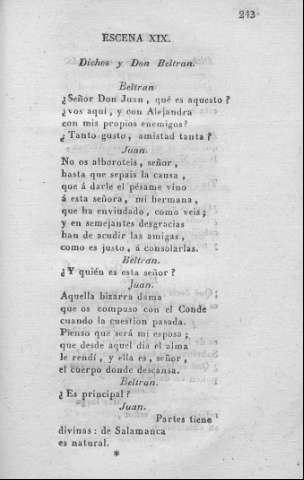 243
ESCENA XIX.
Dichos y Don Beltran.
Beltran
¿Señor Don Juan, qué es aquesto?
¿vos aquí, y con Alejandra
con mis propios enemigos?
¿Tanto gusto, amistad tanta?
Juan.
No os alboroteis, señor,
hasta que sepais la causa,
que á darle el pésame vino
á esta señora, mi hermana,
que ha enviudado, como veis;
y en semejantes desgracias
han de acudir las amigas,
como es justo, á consolarlas.
Beltran.
¿Y quién es esta señor?
Juan.
Aquella bizarra dama
que os compuso con el Conde
cuando la cuestion pasada.
Pienso que será mi esposa;
que desde aquel dia el alma
le rendí, y ella es, señor,
el cuerpo donde descansa.
Beltran.
¿Es principal?
Juan.
Partes tiene
divinas: de Salamanca
es natural.
*